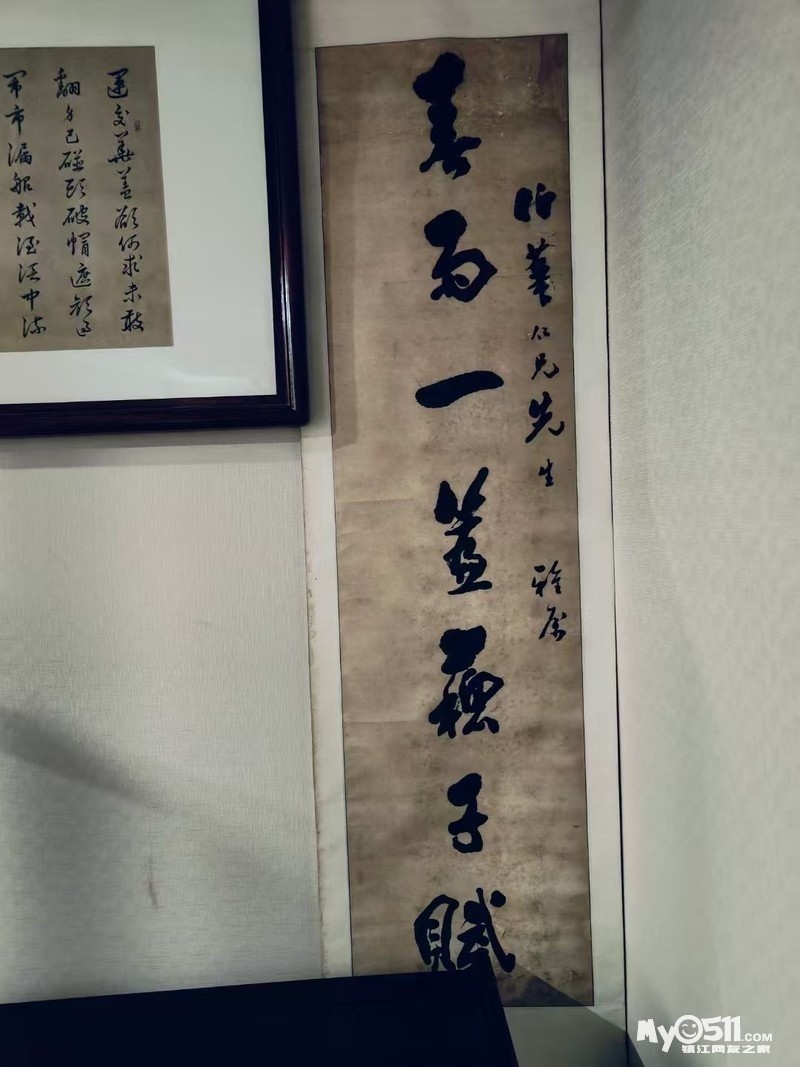 運交華蓋欲何求未敢
翻身已碰頭破帽遮顏過
鬧市漏船載酒泛中流
伯華仁兄先生 雅屬
春雨一蘇子賦
My0511.COM
镇江网友之家